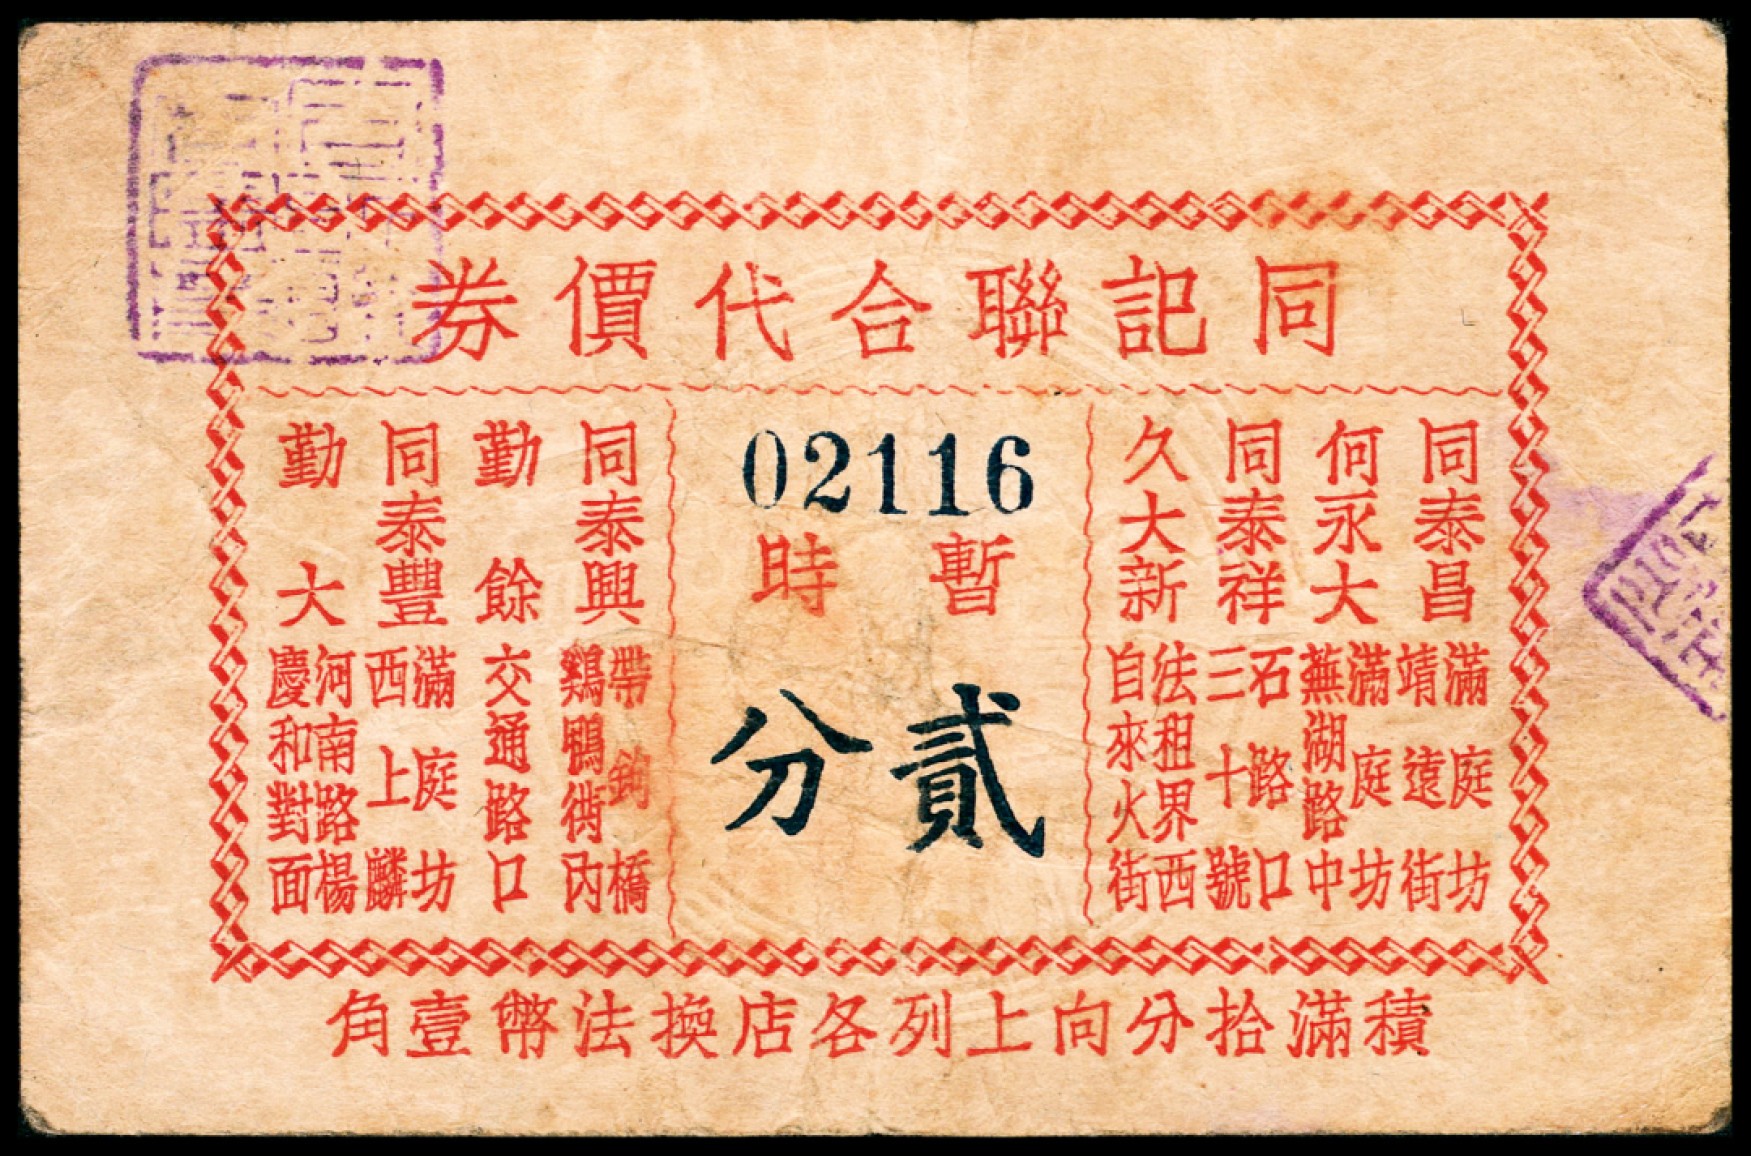 同記聯合代價券
同泰昌
滿庭坊
靖遠街
何永大
滿庭坊
蕪湖路中
同泰祥
石路口
三十號
久大新
法租界西
自來火街
02116
暫時
貳分
同泰興
帶鉤橋
鷄鴨街內
勤餘
交通路口
同泰豐
滿庭坊
西上麟
勤大
河南路楊
慶和對面
積滿拾分向上列各店換法幣壹角